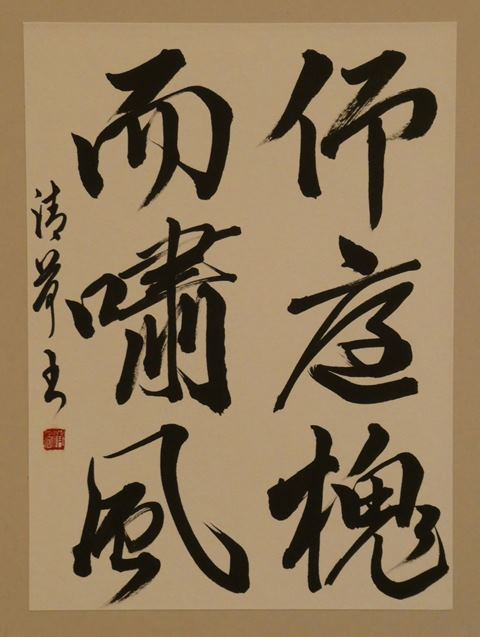 仰庭槐
而嘯風
清書